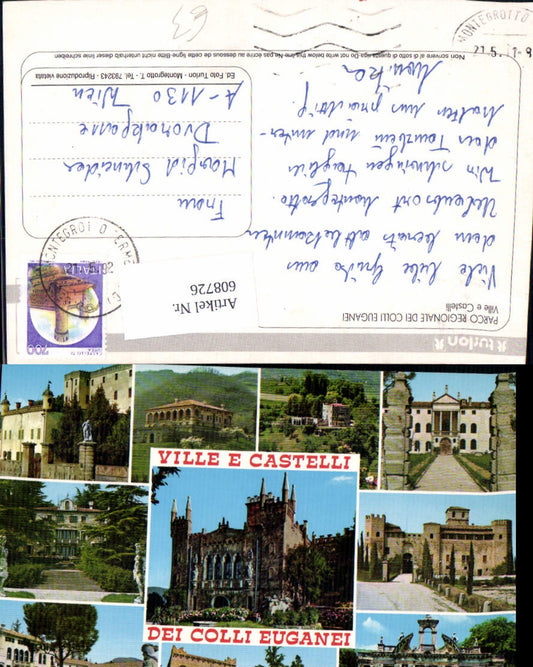 63
MONTEGROTTO
21.5.
Non scrivere al di sotto di questa riga-Do not write below this line-Ne pas écrire au dessous de cette ligne-Bitte nicht unterhalb dieser Zeile schreiben
Ed. Foto Turlon - Montegrotto T. - Tel. 793243 - Riproduzione vietata
turlon
PARCO REGIONALE DEI COLLI EUGANEI
Ville e Castelli
Viele liebe Grüße aus
dem bereits altbekannten
Urlaubsort Montegrotto.
Wir schwingen täglich
das Tanzbein und
halten uns prächtig.
Monika
Frau
Margit Schneider
Dvorakgasse
A-1130 Wien
MONTEGROTTO TERME
ITALIA
Artikel Nr.
608726
VILLE E CASTELLI
DEI COLLI EUGANEI